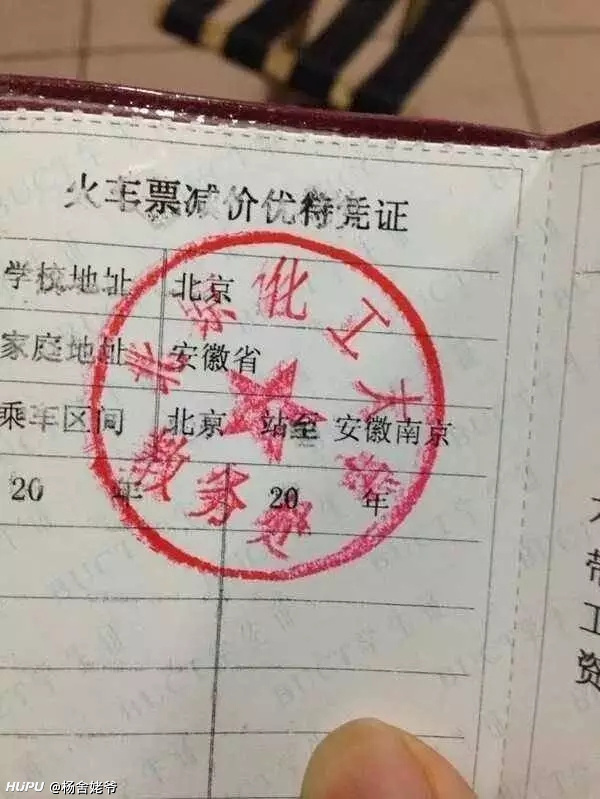 火车票减价优待凭证
学校地址 北京
家庭地址 安徽省
乘车区间 北京 站至 安徽南京
20 年 20 年
北京化工大学
教务处
BUCT学生证
带
工
资
HUPU @杨舍姥爷